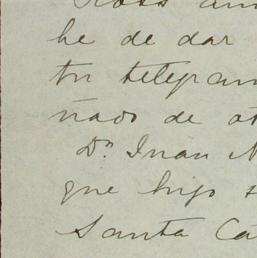 he de dar
tu telegram
ñado de ot
Dn Juan N
que hijo
Santa Ca